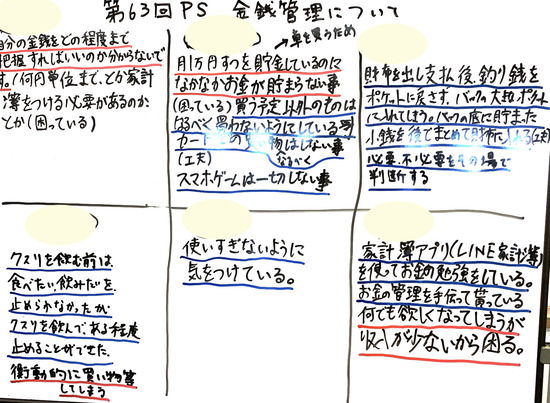 第63回PS 金銭管理について
自分の金銭をどの程度まで
把握すればいいのか分からないで
す。(何円単位まで、とか家計
簿をつける必要があるのか
とか(困っている)
車を買うため
月1万円ずつを貯金しているのに
なかなかお金が貯まらない事
(困っている)買う予定以外のものは
なるべく買わないようにしている事
カード 物はしない事
(工夫) なるべく
スマホゲームは一切しない事
財布を出し支払後、釣り銭を
ポケットに戻さず、バックの大きなポケット
に入れてしまう。バックの底に貯まった
小銭を後でまとめて財布に入れる(工夫)
必要、不必要をその場で
判断する
クスリを飲む前は
食べたい、飲みたいを
止められなかったが
クスリを飲んで、ある程度
止めることができた。
衝動的に買い物等
してしまう
使いすぎないように
気をつけている。
家計簿アプリ(LINE家計簿)
を使ってお金の勉強をしている。
お金の管理を手伝って貰っている
何でも欲しくなってしまうが
収入が少ないから困る。